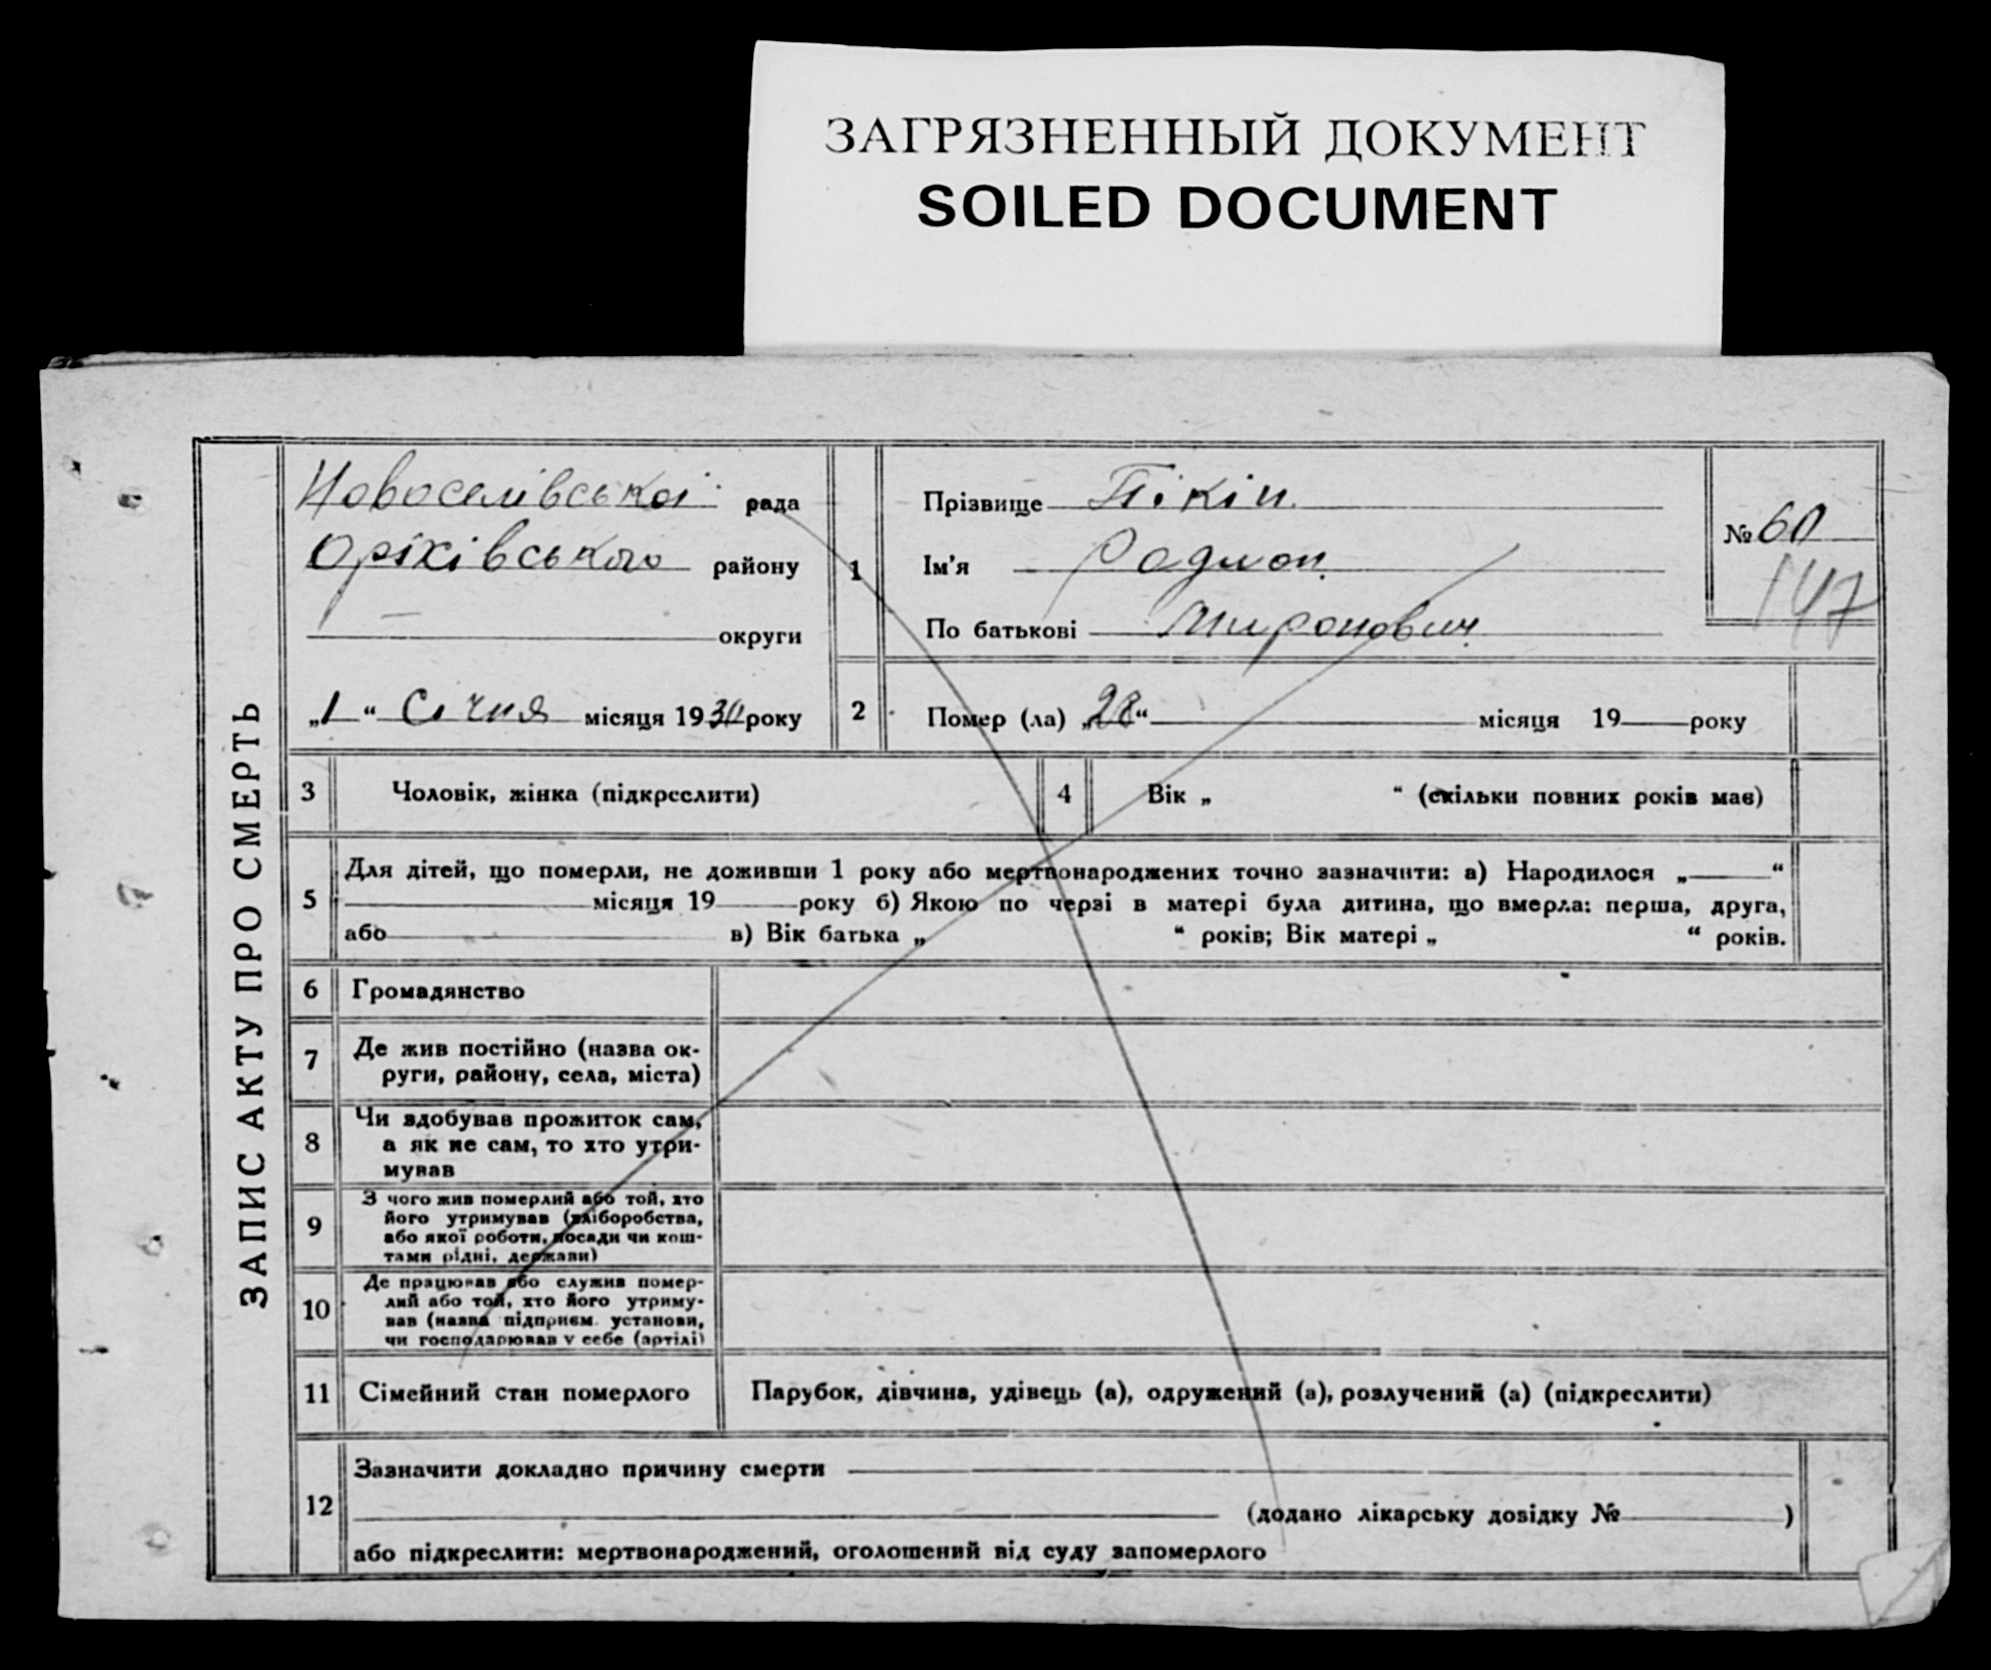 ЗАГРЯЗНЕННЫЙ ДОКУМЕНТ
SOILED DOCUMENT
ЗАПИС АКТУ ПРО СМЕРТЬ
Новоселівської рада
Оріхівського району
— округи
„1“ Січня місяця 1930 року
1
Прізвище Пікін
Ім'я Радион
По батькові Миронович
№ 60
147
2 Помер (ла) „28“ місяця 19 року
3 Чоловік, жінка (підкреслити)
4 Вік „ “ (скільки повних років мав)
5 Для дітей, що померли, не доживши 1 року або мертвонароджених точно зазначити: а) Народилося „ “
місяця 19 року б) Якою по черзі в матері була дитина, що вмерла: перша, друга,
або в) Вік батька „ “ років; Вік матері „ “ років.
6 Громадянство
7 Де жив постійно (назва ок-
руги, району, села, міста)
8 Чи здобував прожиток сам,
а як не сам, то хто утри-
мував
9 З чого жив померлий або той, хто
його утримував (хліборобства,
або якої роботи, посади чи кош-
тами рідні, держави)
10 Де працював або служив помер-
лий або той, хто його утриму-
вав (назва підприєм. установи,
чи господарював у себе (артілі)
11 Сімейний стан померлого Парубок, дівчина, удівець (а), одружений (а), розлучений (а) (підкреслити)
12 Зазначити докладно причину смерти
(додано лікарську довідку № )
або підкреслити: мертвонароджений, оголошений від суду запомерлого